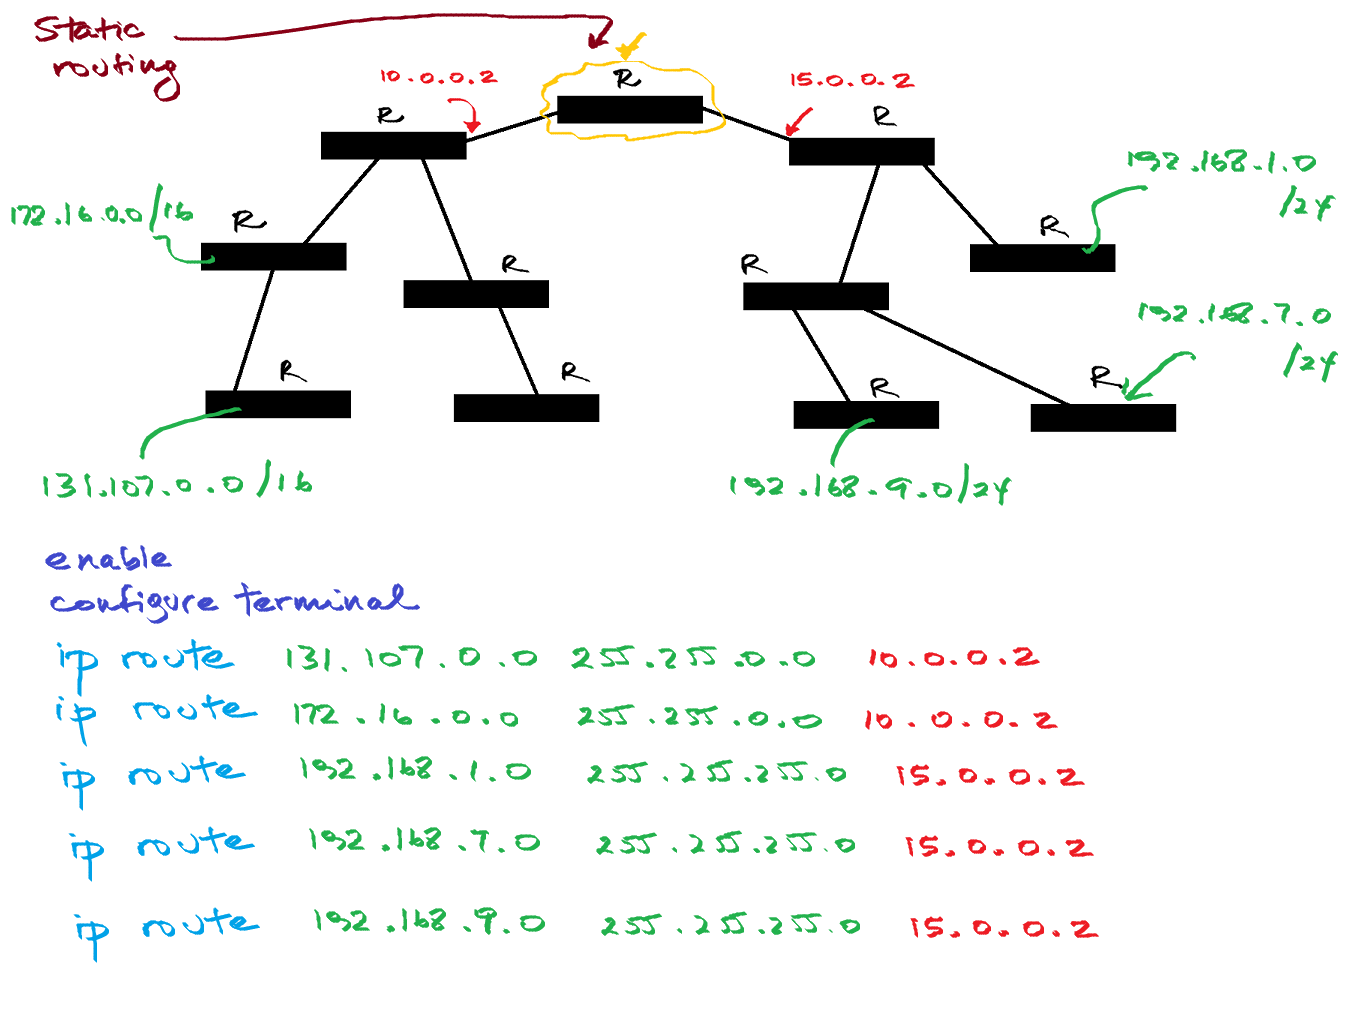 Static
routing
10.0.0.2
R
15.0.0.2
R
R
192.168.1.0
/24
172.16.0.0/16
R
R
R
R
192.168.7.0
/24
R
R
R
R
131.107.0.0/16
192.168.9.0/24
enable
configure terminal
ip route 131.107.0.0 255.255.0.0 10.0.0.2
ip route 172.16.0.0 255.255.0.0 10.0.0.2
ip route 192.168.1.0 255.255.255.0 15.0.0.2
ip route 192.168.7.0 255.255.255.0 15.0.0.2
ip route 192.168.9.0 255.255.255.0 15.0.0.2